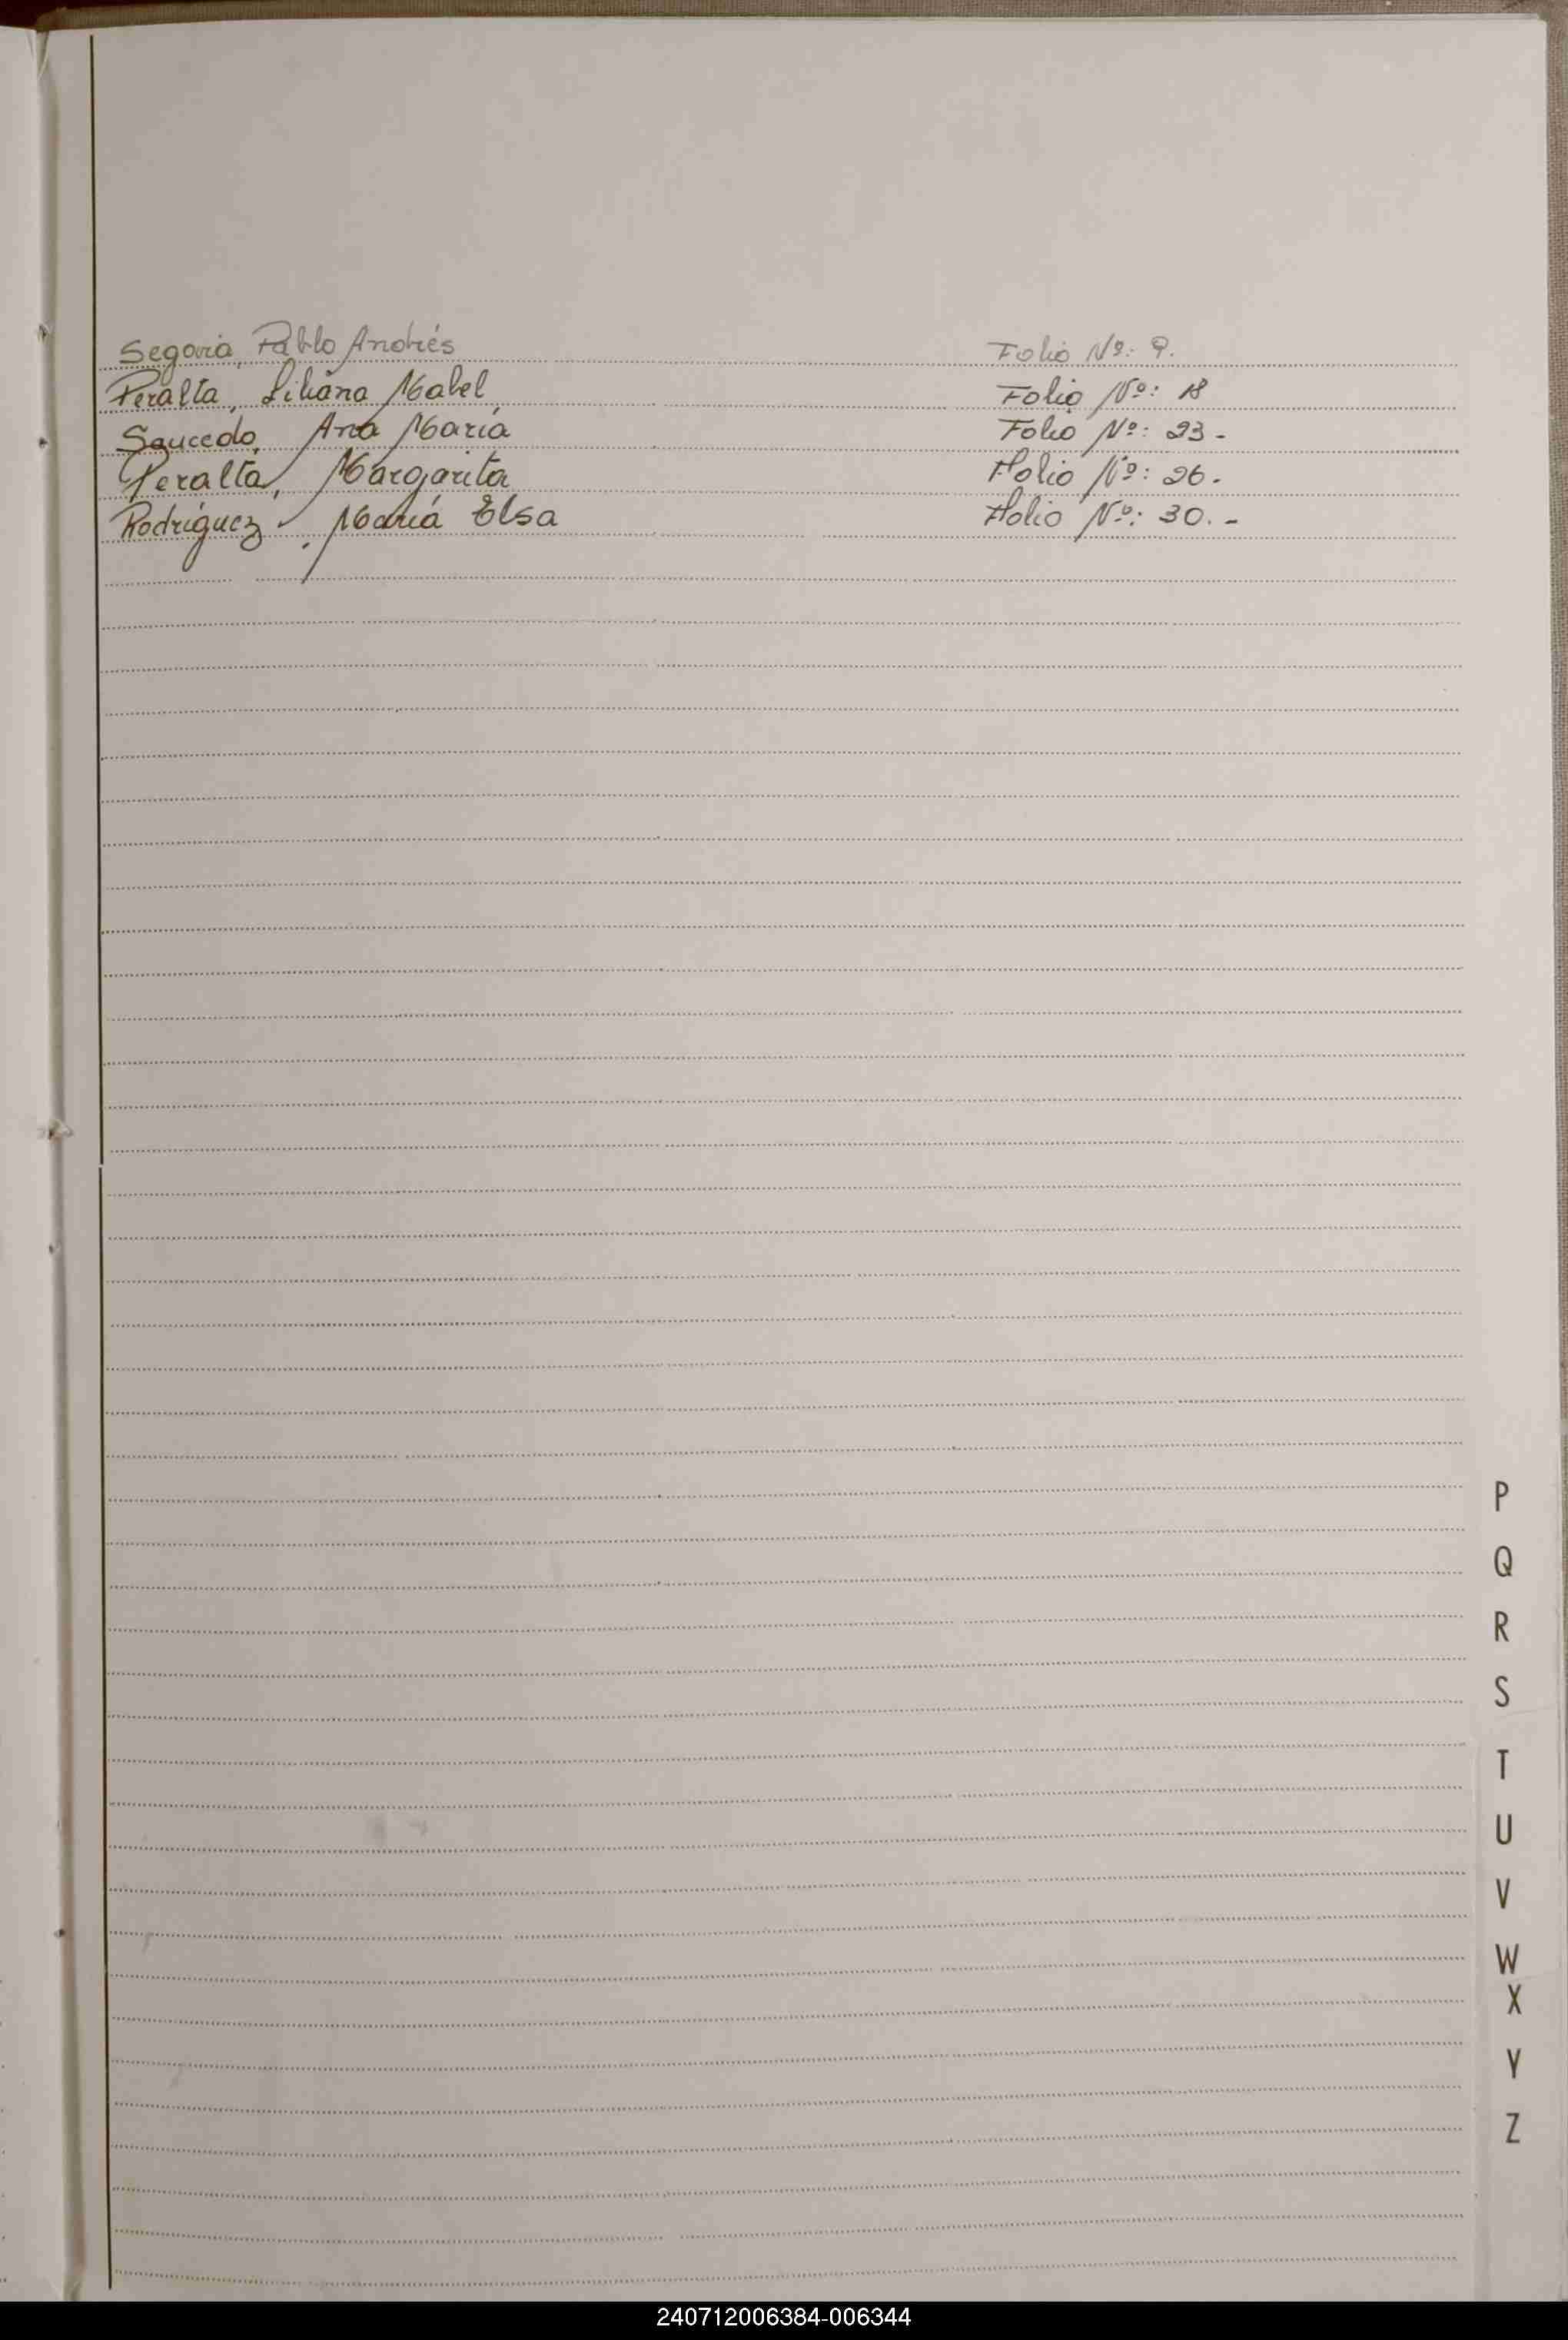 Segovia, Pablo Andrés Folio Nº: 9.
Peralta, Liliana Mabel Folio Nº: 18
Saucedo, Ana María Folio Nº: 23.-
Peralta, Margarita Folio Nº: 26.-
Rodríguez, María Elsa Folio Nº: 30.-
P
Q
R
S
T
U
V
W
X
Y
Z
240712006384-006344